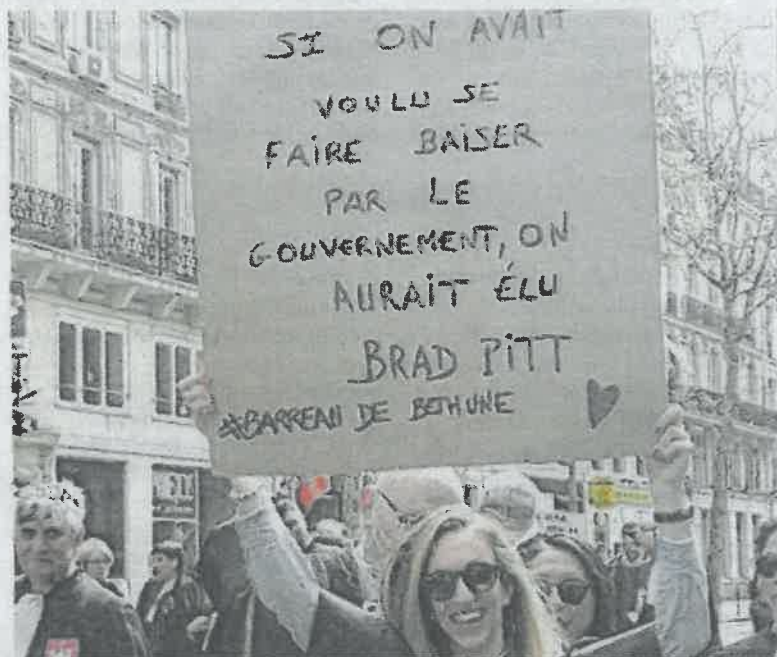 SI ON AVAIT
VOULU SE
FAIRE BAISER
PAR LE
GOUVERNEMENT, ON
AURAIT ÉLU
BRAD PITT
#BARREAU DE BETHUNE